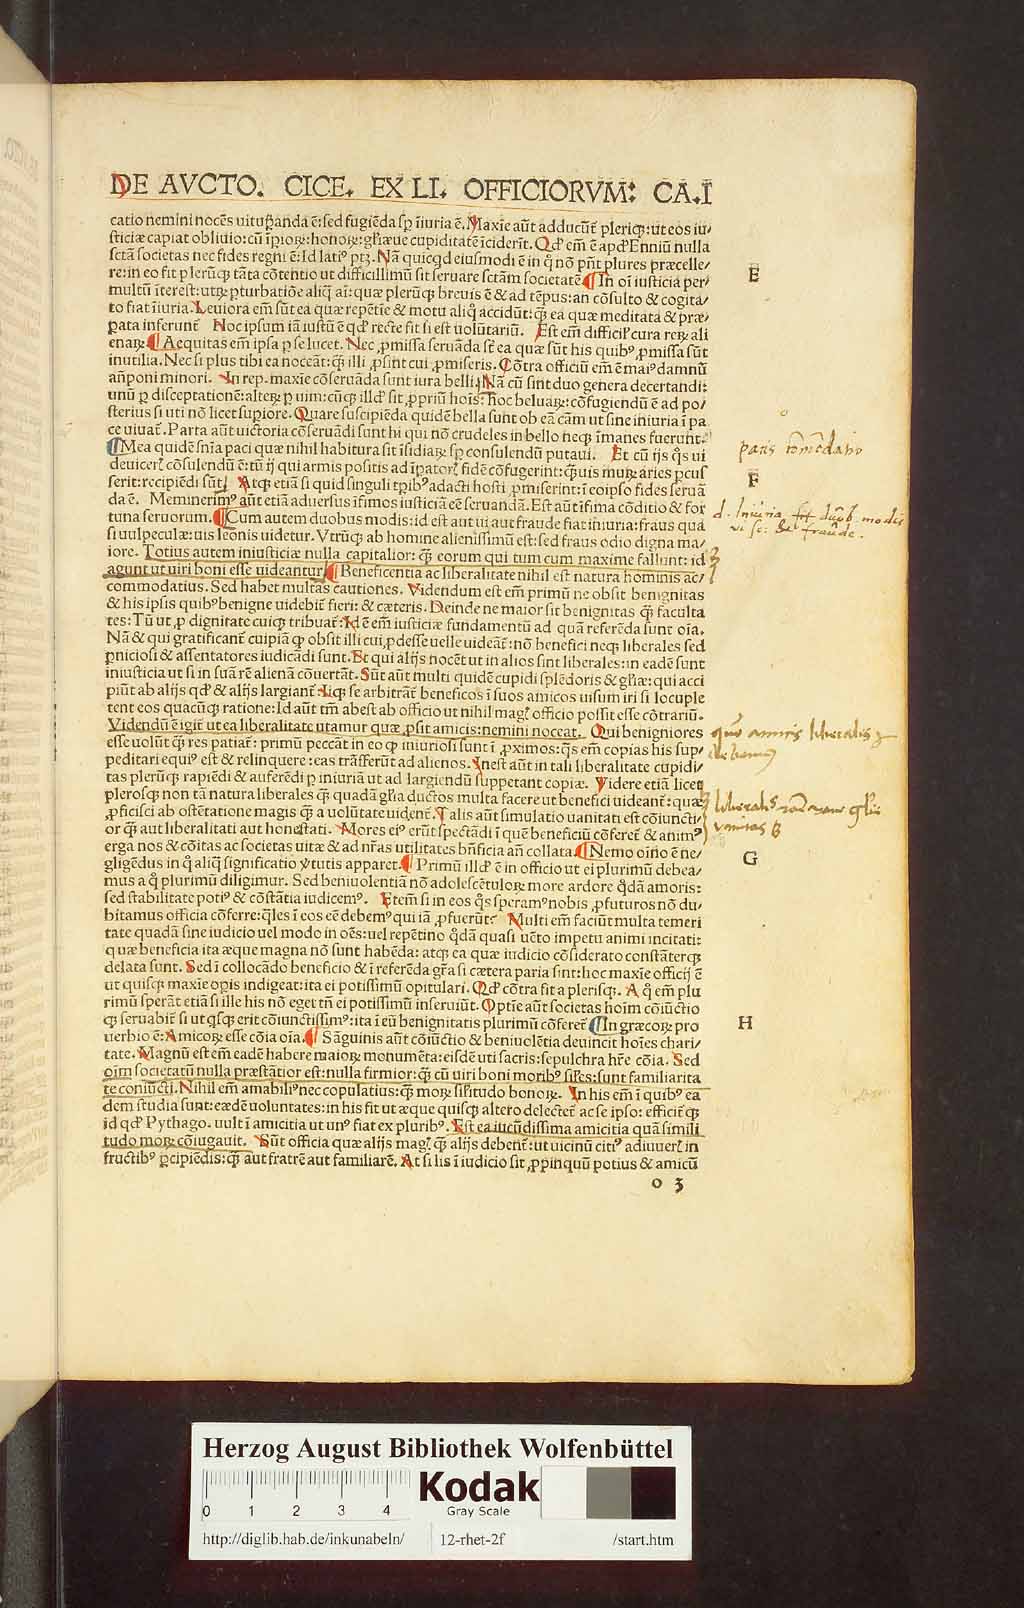 DE AVCTO. CICE. EX LI. OFFICIORVM: CA.I
catio nemini nocẽs uituꝑanda ẽ: sed fugiẽda sꝑ ĩiuria ẽ. Maxĩe aũt adducũt᷑ pleriq;: ut eos iu/
sticiæ capiat obliuio: cũ ĩperioꝝ: honoꝝ: głiæue cupiditatẽ ĩciderĩt. Qđ em̃ ẽ apđ Enniũ nulla
sctã societas nec fides regni ẽ: Id latiꝰ ptꝫ. Nã quicqd eiusmodi ẽ in q̊ nõ pñt plures præcelle/
re: in eo fit plerũq; tãta cõtentio ut difficillimũ sit seruare sctãm societatẽ ¶ In oĩ iusticia per
multũ ĩterest: utꝝ ꝑturbatiõe aliq̃ aĩ: quæ plerũq; breuis ẽ & ad tẽpus: an cõsulto & cogita/
to fiat ĩiuria. Leuiora em̃ sũt ea quæ repẽtie & motu aliq̃ accidũt: q̃ꝫ ea quæ meditata & præ/
ꝑata inferunt᷑ Hoc ipsum iã iustũ ẽ qđ recte fit si est uolũtariũ. Est em̃ difficił cura reꝝ ali
enaꝝ ¶ Aequitas em̃ ipsa ꝑ se lucet. Nec ꝓmissa seruãda sũt ea quæ sũt his quibꝰ ꝓmissa sũt
inutilia. Nec si plus tibi ea noceãt: q̃ꝫ illi ꝓsint cui ꝓmiseris. Cõtra officiũ em̃ ẽ maiꝰ damnũ
añponi minori. In rep. maxĩe cõseruãda sunt iura belli Nã cũ sint duo genera decertandi:
unũ ꝑ disceptationẽ: alteꝝ ꝑ uim: cũq; illđ sit ꝓpriũ hoĩs: hoc beluaꝝ: cõfugiendũ ẽ ad po/
sterius si uti nõ licet supiore. Quare suscipiẽda quidẽ bella sunt ob eã cãm ut sine iniuria ĩ pa
ce uiuat᷑. Parta aũt uictoria cõseruãdi sunt hi qui nõ crudeles in bello neq; ĩmanes fuerunt.
¶ Mea quidẽ sñia paci quæ nihil habitura sit ĩsidiaꝝ sꝑ consulendũ putaui. Et cũ ijs q̊s ui
deuiceris cõsulendũ ẽ: tũ ij qui armis positis ad ĩpatorꝭ fidẽ cõfugerint: q̃ꝫuis muꝝ aries ꝑcus
serit: recipiẽdi sũt. Atq; etiã si quid singuli tꝑibꝰ adacti hosti ꝓmiserint: ĩ eo ipso fides seruã
da ẽ. Meminerimꝰ aũt etiã aduersus ĩfimos iusticiã eẽ seruandã. Est aũt ĩfima cõditio & for
tuna seruorum. ¶ Cum autem duobus modis: id est aut ui aut fraude fiat iniuria: fraus qua
si uulpeculæ: uis leonis uidetur. Vtrũq; ab homine alienissimũ est: sed fraus odio digna ma/
iore. Totius autem iniusticiæ nulla capitalior: q̃ꝫ eorum qui tum cum maxime fallunt: id
agunt ut uiri boni esse uideantur. ¶ Beneficentia ac liberalitate nihil est natura hominis ac/
commodatius. Sed habet multas cautiones. Videndum est em̃ primũ ne obsit benignitas
& his ipsis quibꝰ benigne uidebit᷑ fieri: & cæteris. Deinde ne maior sit benignitas q̃ꝫ faculta
tes: Tũ ut ꝓ dignitate cuiq; tribuat᷑: Id ẽ em̃ iusticiæ fundamentũ ad quã referẽda sunt oĩa.
Nã & qui gratificant᷑ cuipiã q̃ꝫ obsit illi cui ꝓdesse uelle uideãt᷑: nõ benefici neq; liberales sed
ꝑniciosi & assentatores iudicãdi sunt. Et qui alijs nocẽt ut in alios sint liberales: in eadẽ sunt
iniusticia ut si in suã rẽ alienã cõuertãt. Sũt aũt multi quidẽ cupidi splẽdoris & głiæ: qui acci
piũt ab alijs qđ & alijs largiant᷑. Iiq; se arbitrãt᷑ beneficos ĩ suos amicos uisum iri si locuple
tent eos quacũq; ratione: Id aũt tm̃ abest ab officio ut nihil magꝭ officio possit esse cõtrariũ.
Videndũ ẽ igit᷑ ut ea liberalitate utamur quæ ꝓsit amicis: nemini noceat. Qui benigniores
esse uolũt q̃ꝫ res patiat᷑: primũ peccãt in eo q̃ꝫ iniuriosi sunt ĩ ꝓximos: q̃s em̃ copias his sup/
peditari equiꝰ est & relinquere: eas trãsferũt ad alienos. Inest aũt in tali liberalitate cupidi/
tas plerũq; rapiẽdi & auferẽdi ꝑ iniuriã ut ad largiendũ suppetant copiæ. Videre etiã licet
plerosq; non tã natura liberales q̃ꝫ quadã głia ductos multa facere ut benefici uideant᷑: quæ
ꝓficisci ab ostẽtatione magis q̃ꝫ a uolũtate uident᷑. Talis aũt simulatio uanitati est cõiuncti/
or q̃ꝫ aut liberalitati aut honestati. Mores eiꝰ erũt spectãdi ĩ quẽ beneficiũ cõferet᷑ & animꝰ
erga nos & cõitas ac societas uitæ & ad nr̃as utilitates bñficia añ collata. ¶ Nemo oĩno ẽ ne/
gligẽdus in q̊ aliq̃ significatio v̾tutis apparet. ¶ Primũ illđ ẽ in officio ut ei plurimũ debea/
mus a q̊ plurimũ diligimur. Sed beniuolentiã nõ adolescẽtuloꝝ more ardore q̊dã amoris:
sed stabilitate potiꝰ & cõstãtia iudicemꝰ. Etem̃ si in eos q̊s speramꝰ nobis ꝓfuturos nõ du/
bitamus officia cõferre: q̃les ĩ eos eẽ debemꝰ qui iã ꝓfuerũt? Multi em̃ faciũt multa temeri
tate quadã sine iudicio uel modo in oẽs: uel repẽtino q̊dã quasi uẽto impetu animi incitati:
quæ beneficia ita æque magna nõ sunt habẽda: atq; ea quæ iudicio cõsiderato constãterq;
delata sunt. Sed ĩ collocãdo beneficio & ĩ referẽda gr̃a si cætera paria sint: hoc maxĩe officij ẽ
ut quisq; maxĩe opis indigeat: ita ei potissimũ opitulari. Qđ cõtra fit a plerisq;. A q̊ em̃ plu
rimũ sperãt etiã si ille his nõ eget tñ ei potissimũ inseruiũt. Optĩe aũt societas hoĩm cõiũctio
q; seruabit᷑ si ut q̊sq; erit cõiunctissimꝰ: ita ĩ eũ benignitatis plurimũ cõferet᷑ ¶ In græcoꝝ pro
uerbio ẽ: Amicoꝝ esse cõia oĩa. ¶ Sãguinis aũt cõiũctio & beniuolẽtia deuincit hoĩes chari/
tate. Magnũ est em̃ eadẽ habere maioꝝ monumẽta: eisdẽ uti sacris: sepulchra hr̃e cõia. Sed
oĩm societatũ nulla præstãtior est: nulla firmior: q̃ꝫ cũ uiri boni moribꝰ siłes: sunt familiarita
te coniũcti. Nihil em̃ amabiliꝰ nec copulatius: q̃ꝫ moꝝ siłitudo bonoꝝ. In his em̃ ĩ quibꝰ ea
dem studia sunt: eædẽ uoluntates: in his fit ut æque quisq; altero delectet᷑ ac se ipso: efficit᷑q;
id qđ Pythago. uult ĩ amicitia ut unꝰ fiat ex pluribꝰ. Est ea iucũdissima amicitia quã simili
tudo moꝝ cõiugauit. Sũt officia quæ alijs magꝭ q̃ꝫ alijs debent᷑: ut uicinũ citiꝰ adiuuerꝭ in
fructibꝰ ꝑcipiẽdis: q̃ꝫ aut fratrẽ aut familiarẽ. At si lis ĩ iudicio sit ꝓpinquũ potius & amicũ
o 3
E
F
d. Iniuria fit duob modis
vi sc: & fraude.
G
H
Herzog August Bibliothek Wolfenbüttel
0 1 2 3 4
Kodak
Gray Scale
http://diglib.hab.de/inkunabeln/ 12-rhet-2f /start.htm